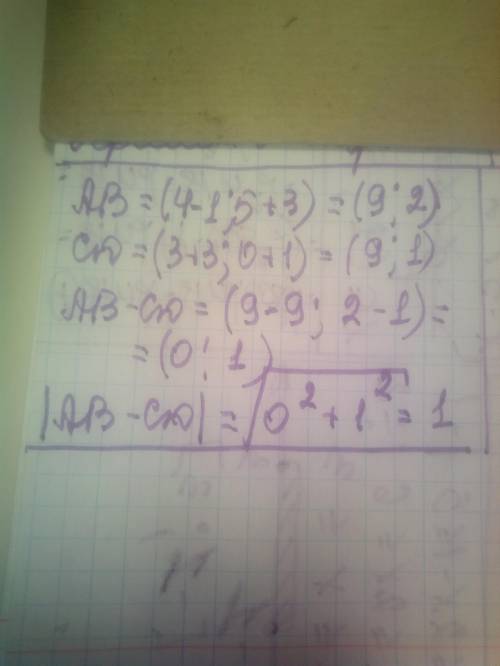 AB = (4-1; 5+3) = (9; 2)
CD = (3+3; 0+1) = (9; 1)
AB - CD = (9-9; 2-1) =
= (0; 1)
|AB - CD| = √0² + 1² = 1